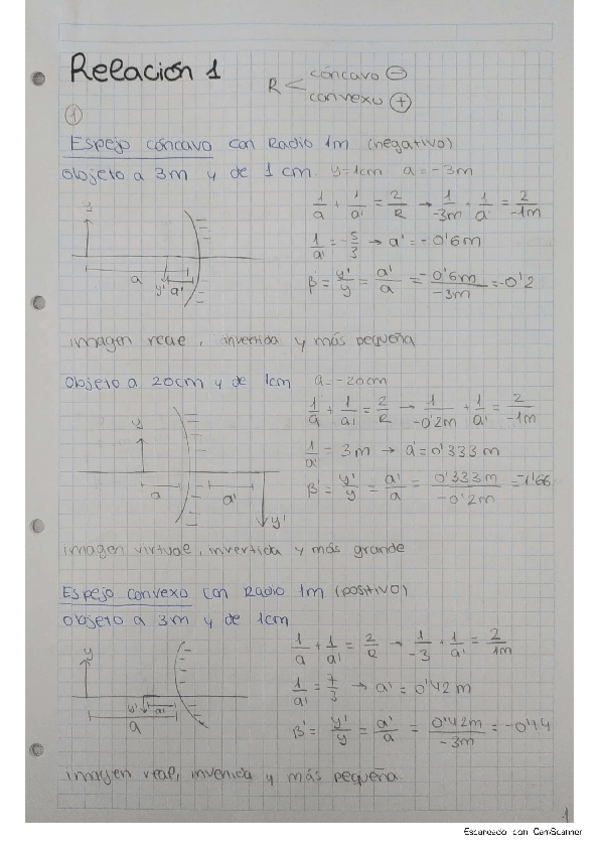 Relación 1
R < cóncavo ⊖
convexo ⊕
①
Espejo cóncavo con Radio 1m (negativo)
Objeto a 3m y de 1cm. y=1cm a=-3m
1/a + 1/a' = 2/R → 1/-3m + 1/a' = 2/-1m
1/a' = -5/3 → a' = -0'6m
β' = y'/y = a'/a = -0'6m/-3m = -0'2
y
a
y' a'
imagen real, invertida y más pequeña
Objeto a 20cm y de 1cm a=-20cm
1/a + 1/a' = 2/R → 1/-0'2m + 1/a' = 2/-1m
1/a' = 3m → a' = 0'333m
β' = y'/y = a'/a = 0'333m/-0'2m = -1'66
y
a
a'
y'
imagen virtual, invertida y más grande
Espejo convexo con Radio 1m (positivo)
Objeto a 3m y de 1cm
1/a + 1/a' = 2/R → 1/-3 + 1/a' = 2/1m
1/a' = 7/3 → a' = 0'42m
β' = y'/y = a'/a = 0'42m/-3m = -0'14
y
y' a'
a
imagen real, invertida y más pequeña
1
Escaneado con CamScanner